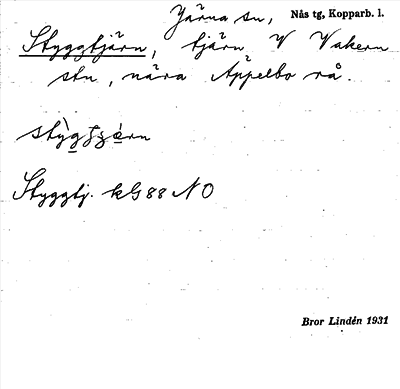 Järna sn, Nås tg, Kopparb. l.
Styggtjärn, tjärn V Vakern
stn, nära Äppelbo rå.
Styggtj. kG 88 NO
Bror Lindén 1931